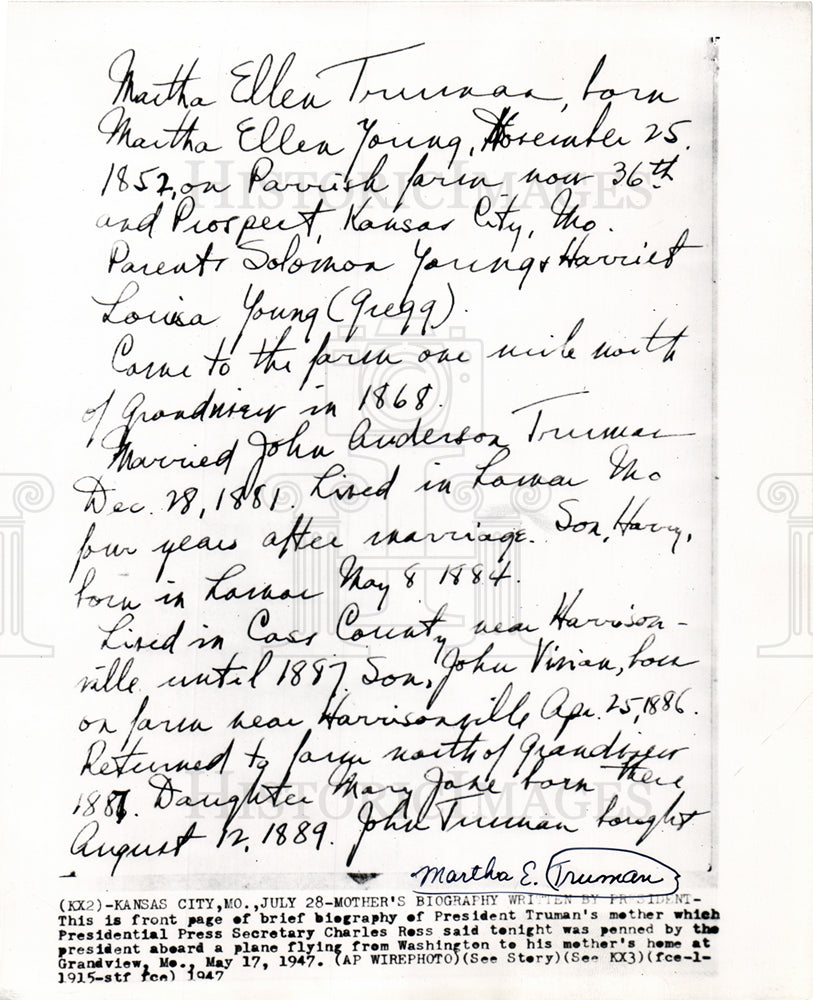 Martha Ellen Truman, born
Martha Ellen Young, November 25.
1852, on Parrish farm now 36th
and Prospect, Kansas City, Mo.
Parents Solomon Young & Harriet
Louisa Young (Gregg).
Came to the farm one mile north
of Grandview in 1868.
Married John Anderson Truman
Dec. 28, 1881. Lived in Lamar Mo
four years after marriage. Son, Harry,
born in Lamar May 8 1884.
Lived in Cass County near Harrison-
ville until 1887. Son, John Vivian, born
on farm near Harrisonville Apr. 25, 1886.
Returned to farm north of Grandview
1887. Daughter Mary Jane born there
August 12, 1889. John Truman bought
Martha E. Truman
(KX2)-KANSAS CITY,MO.,JULY 28-MOTHER'S BIOGRAPHY WRITTEN BY PRESIDENT-
This is front page of brief biography of President Truman's mother which
Presidential Press Secretary Charles Ross said tonight was penned by the
president aboard a plane flying from Washington to his mother's home at
Grandview, Mo., May 17, 1947. (AP WIREPHOTO)(See Story)(See KX3)(fce-1-
1915-stf fce) 1947
HISTORIC IMAGES
HISTORIC IMAGES